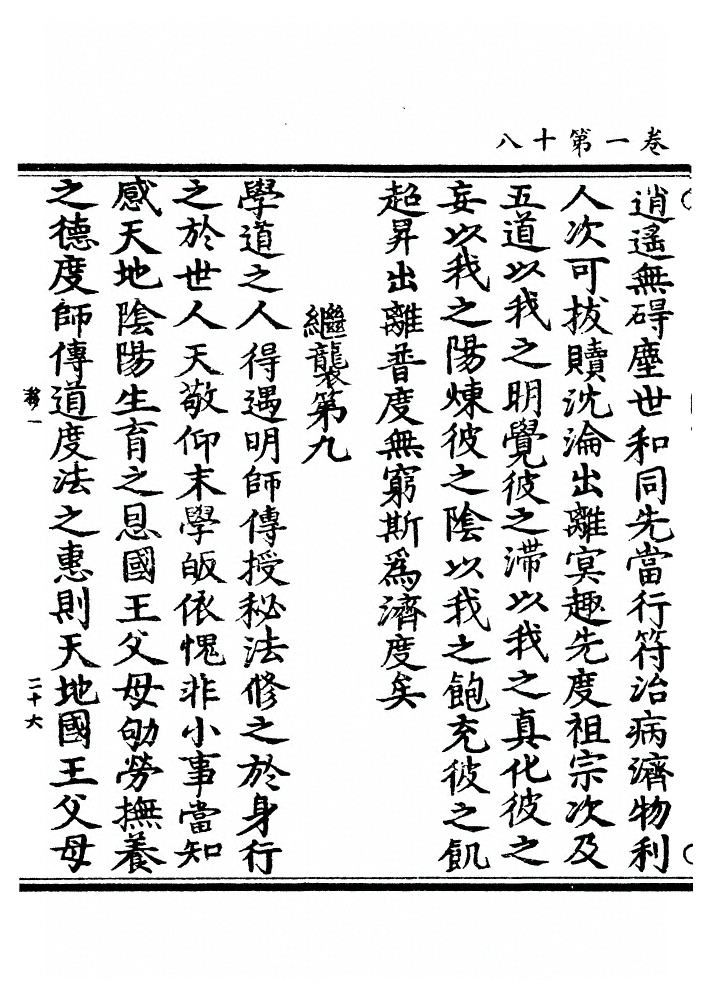 卷一第十八
逍遙無碍塵世和同先當行符治病濟物利
人次可拔贖沈淪出離冥趣先度祖宗次及
五道以我之明覺彼之滯以我之真化彼之
妄以我之陽煉彼之陰以我之飽充彼之飢
超昇出離普度無窮斯為濟度矣
繼襲第九
學道之人得遇明師傳授秘法修之於身行
之於世人天敬仰末學皈依愧非小事當知
感天地陰陽生育之恩國王父母劬勞撫養
之德度師傳道度法之惠則天地國王父母
二十六